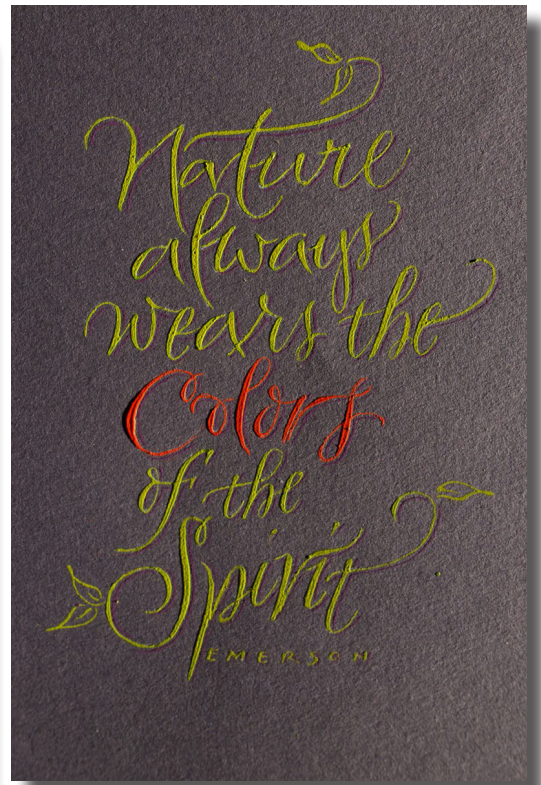 Nature
always
wears the
Colors
of the
Spirit
EMERSON